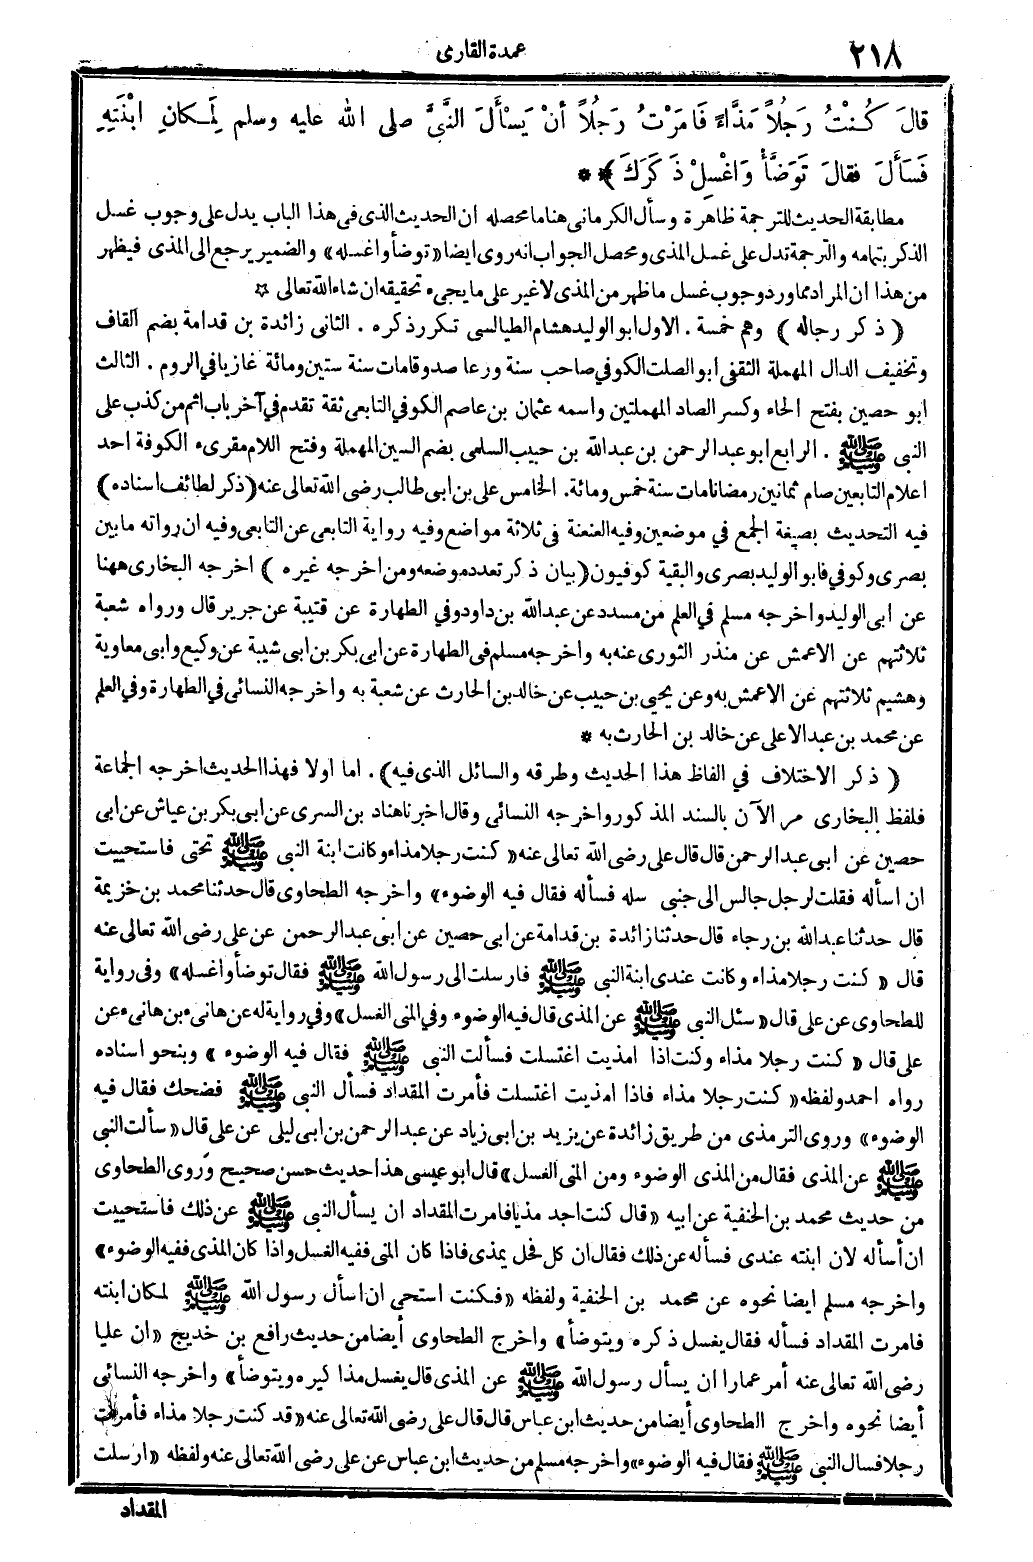 ٢١٨
عمدة القارى
قالَ كُنْتُ رَجُلاً مَذَّاءً فَامَرْتُ رَجُلاً أنْ يَسْأَلَ النَّبِيَّ صلى الله عليه وسلم لِمَكانِ ابْنَتِهِ
فَسَأَلَ فقالَ تَوَضَّأْ وَاغْسِلْ ذَكَرَكَ ﴾ * *
مطابقة الحديث للترجمة ظاهرة وسأل الكرمانى هنا ما محصله ان الحديث الذى فى هذا الباب يدل على وجوب غسل
الذكر بتمامه والترجمة تدل على غسل المذى ومحصل الجواب انه روى ايضا «توضأ واغسله» والضمير يرجع الى المذى فيظهر
من هذا ان المراد مما ورد وجوب غسل ما ظهر من المذى لا غير على ما يجىء تحقيقه ان شاء الله تعالى ☆
( ذكر رجاله ) وهم خمسة . الاول ابو الوليد هشام الطيالسى تكرر ذكره . الثانى زائدة بن قدامة بضم القاف
وتخفيف الدال المهملة الثقفى ابو الصلت الكوفي صاحب سنة ورعا صدوقا مات سنة ستين ومائة غازيا في الروم . الثالث
ابو حصين بفتح الحاء وكسر الصاد المهملتين واسمه عثمان بن عاصم الكوفي التابعى ثقة تقدم في آخر باب اثم من كذب على
النبى ﷺ . الرابع ابو عبد الرحمن بن عبد الله بن حبيب السلمى بضم السين المهملة وفتح اللام مقرىء الكوفة احد
اعلام التابعين صام ثمانين رمضانا مات سنة خمس ومائة. الخامس على بن ابى طالب رضى الله تعالى عنه (ذكر لطائف اسناده)
فيه التحديث بصيغة الجمع في موضعين وفيه العنعنة فى ثلاثة مواضع وفيه رواية التابعى عن التابعى وفيه ان رواته ما بين
بصرى وكوفي فابو الوليد بصرى والبقية كوفيون (بيان ذكر تعدد موضعه ومن اخرجه غيره ) اخرجه البخارى ههنا
عن ابى الوليد واخرجه مسلم في العلم من مسدد عن عبد الله بن داود وفي الطهارة عن قتيبة عن جرير قال ورواه شعبة
ثلاثتهم عن الاعمش عن منذر الثورى عنه به واخرجه مسلم فى الطهارة عن ابى بكر بن ابى شيبة عن وكيع وابى معاوية
وهشيم ثلاثتهم عن الاعمش به وعن يحيى بن حبيب عن خالد بن الحارث عن شعبة به واخرجه النسائى في الطهارة وفي العلم
عن محمد بن عبد الاعلى عن خالد بن الحارث به *
( ذكر الاختلاف في الفاظ هذا الحديث وطرقه والسائل الذى فيه) . اما اولا فهذا الحديث اخرجه الجماعة
فلفظ البخارى مر الآن بالسند المذكور واخرجه النسائى وقال اخبرنا هناد بن السرى عن ابى بكر بن عياش عن ابى
حصين عن ابى عبد الرحمن قال قال على رضى الله تعالى عنه «كنت رجلا مذاء وكانت ابنة النبى ﷺ تحتى فاستحييت
ان اسأله فقلت لرجل جالس الى جنبى سله فسأله فقال فيه الوضوء» واخرجه الطحاوى قال حدثنا محمد بن خزيمة
قال حدثنا عبد الله بن رجاء قال حدثنا زائدة بن قدامة عن ابى حصين عن ابى عبد الرحمن عن على رضى الله تعالى عنه
قال « كنت رجلا مذاء وكانت عندى ابنة النبى ﷺ فارسلت الى رسول الله ﷺ فقال توضأ واغسله» وفى رواية
للطحاوى عن على قال «سئل النبى ﷺ عن المذى قال فيه الوضوء وفي المنى الغسل» وفي رواية له عن هانىء بن هانىء عن
على قال « كنت رجلا مذاء وكنت اذا امذيت اغتسلت فسألت النبى ﷺ فقال فيه الوضوء » وبنحو اسناده
رواه احمد ولفظه «كنت رجلا مذاء فاذا امذيت اغتسلت فأمرت المقداد فسأل النبى ﷺ فضحك فقال فيه
الوضوء» وروى الترمذى من طريق زائدة عن يزيد بن ابى زياد عن عبد الرحمن بن ابى ليلى عن على قال «سألت النبى
ﷺ عن المذى فقال من المذى الوضوء ومن المنى الغسل» قال ابو عيسى هذا حديث حسن صحيح وروى الطحاوى
من حديث محمد بن الحنفية عن ابيه «قال كنت اجد مذيا فامرت المقداد ان يسأل النبى ﷺ عن ذلك فاستحييت
ان أسأله لان ابنته عندى فسأله عن ذلك فقال ان كل فحل يمذى فاذا كان المنى ففيه الغسل واذا كان المذى ففيه الوضوء»
واخرجه مسلم ايضا نحوه عن محمد بن الحنفية ولفظه «فكنت استحى ان اسأل رسول الله ﷺ لمكان ابنته
فامرت المقداد فسأله فقال يغسل ذكره ويتوضأ» واخرج الطحاوى أيضا من حديث رافع بن خديج «ان عليا
رضى الله تعالى عنه أمر عمارا ان يسأل رسول الله ﷺ عن المذى قال يغسل مذا كيره ويتوضأ» واخرجه النسائى
أيضا نحوه واخرج الطحاوى أيضا من حديث ابن عباس قال قال على رضى الله تعالى عنه «قد كنت رجلا مذاء فأمرت
رجلا فسال النبى ﷺ فقال فيه الوضوء» واخرجه مسلم من حديث ابن عباس عن على رضى الله تعالى عنه ولفظه «ارسلت
المقداد